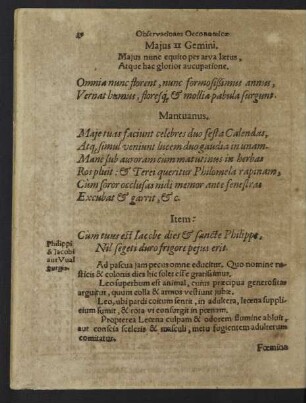 Observationes Oeconomicæ
Majus II Gemini.
Majus nunc equito per arva lætus,
Atque hac glorior aucupatione.
Omnia nunc florent, nunc formosissimus annus,
Vernat humus, floresq, & mollia pabula surgunt.
Mantuanus.
Maje tuas faciunt celebres duo festa Calendas,
Atq, simul veniunt lucem duo gaudia in unam.
Mane sub auroram cum matutinus in herbas
Ros pluit: & Terei queritur Philomela rapinam,
Cum soror occlusas nidi memor ante fenestras
Excubat & garrit, &c.
Item:
Cum tuus est Iacobe dies & sancte Philippe,
Nil segeti duro frigore pejus erit.
Philippi
& Jacobi
aut Vual
purgis.
Ad pascua jam pecus omne educitur. Quo nomine ru-
sticis & colonis dies hic solet esse gratissimus.
Leo superbum est animal, cujus præcipua generositas
arguitur, quum colla & armos vestiunt jubæ.
Leo, ubi pardi coitum sentit, in adultera, leæna suppli-
cium sumit, & tota vi consurgit in pœnam.
Propterea Leæna culpam & odorem flumine abluit,
aut conscia sceleris & masculi, metu fugientem adulterum
comitatur.
Fœmina